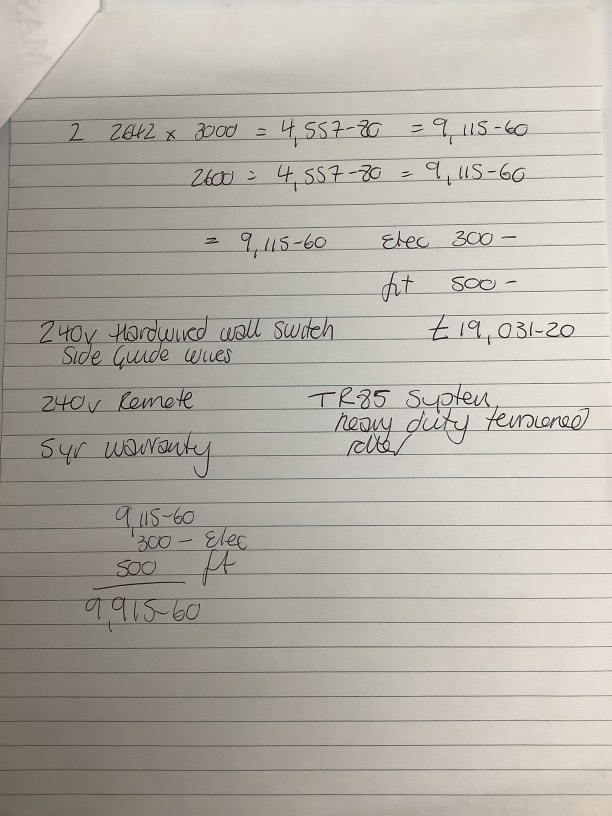 2 2642 x 3000 = 4,557-80 = 9,115-60
2600 = 4,557-80 = 9,115-60
= 9,115-60 Elec 300 -
fit 500 -
240v Hardwired wall switch £19,031-20
Side Guide wires
240v Remote TR85 System
heavy duty tensioned
5yr warranty roller
9,115-60
300 - Elec
500 fit
9,915-60